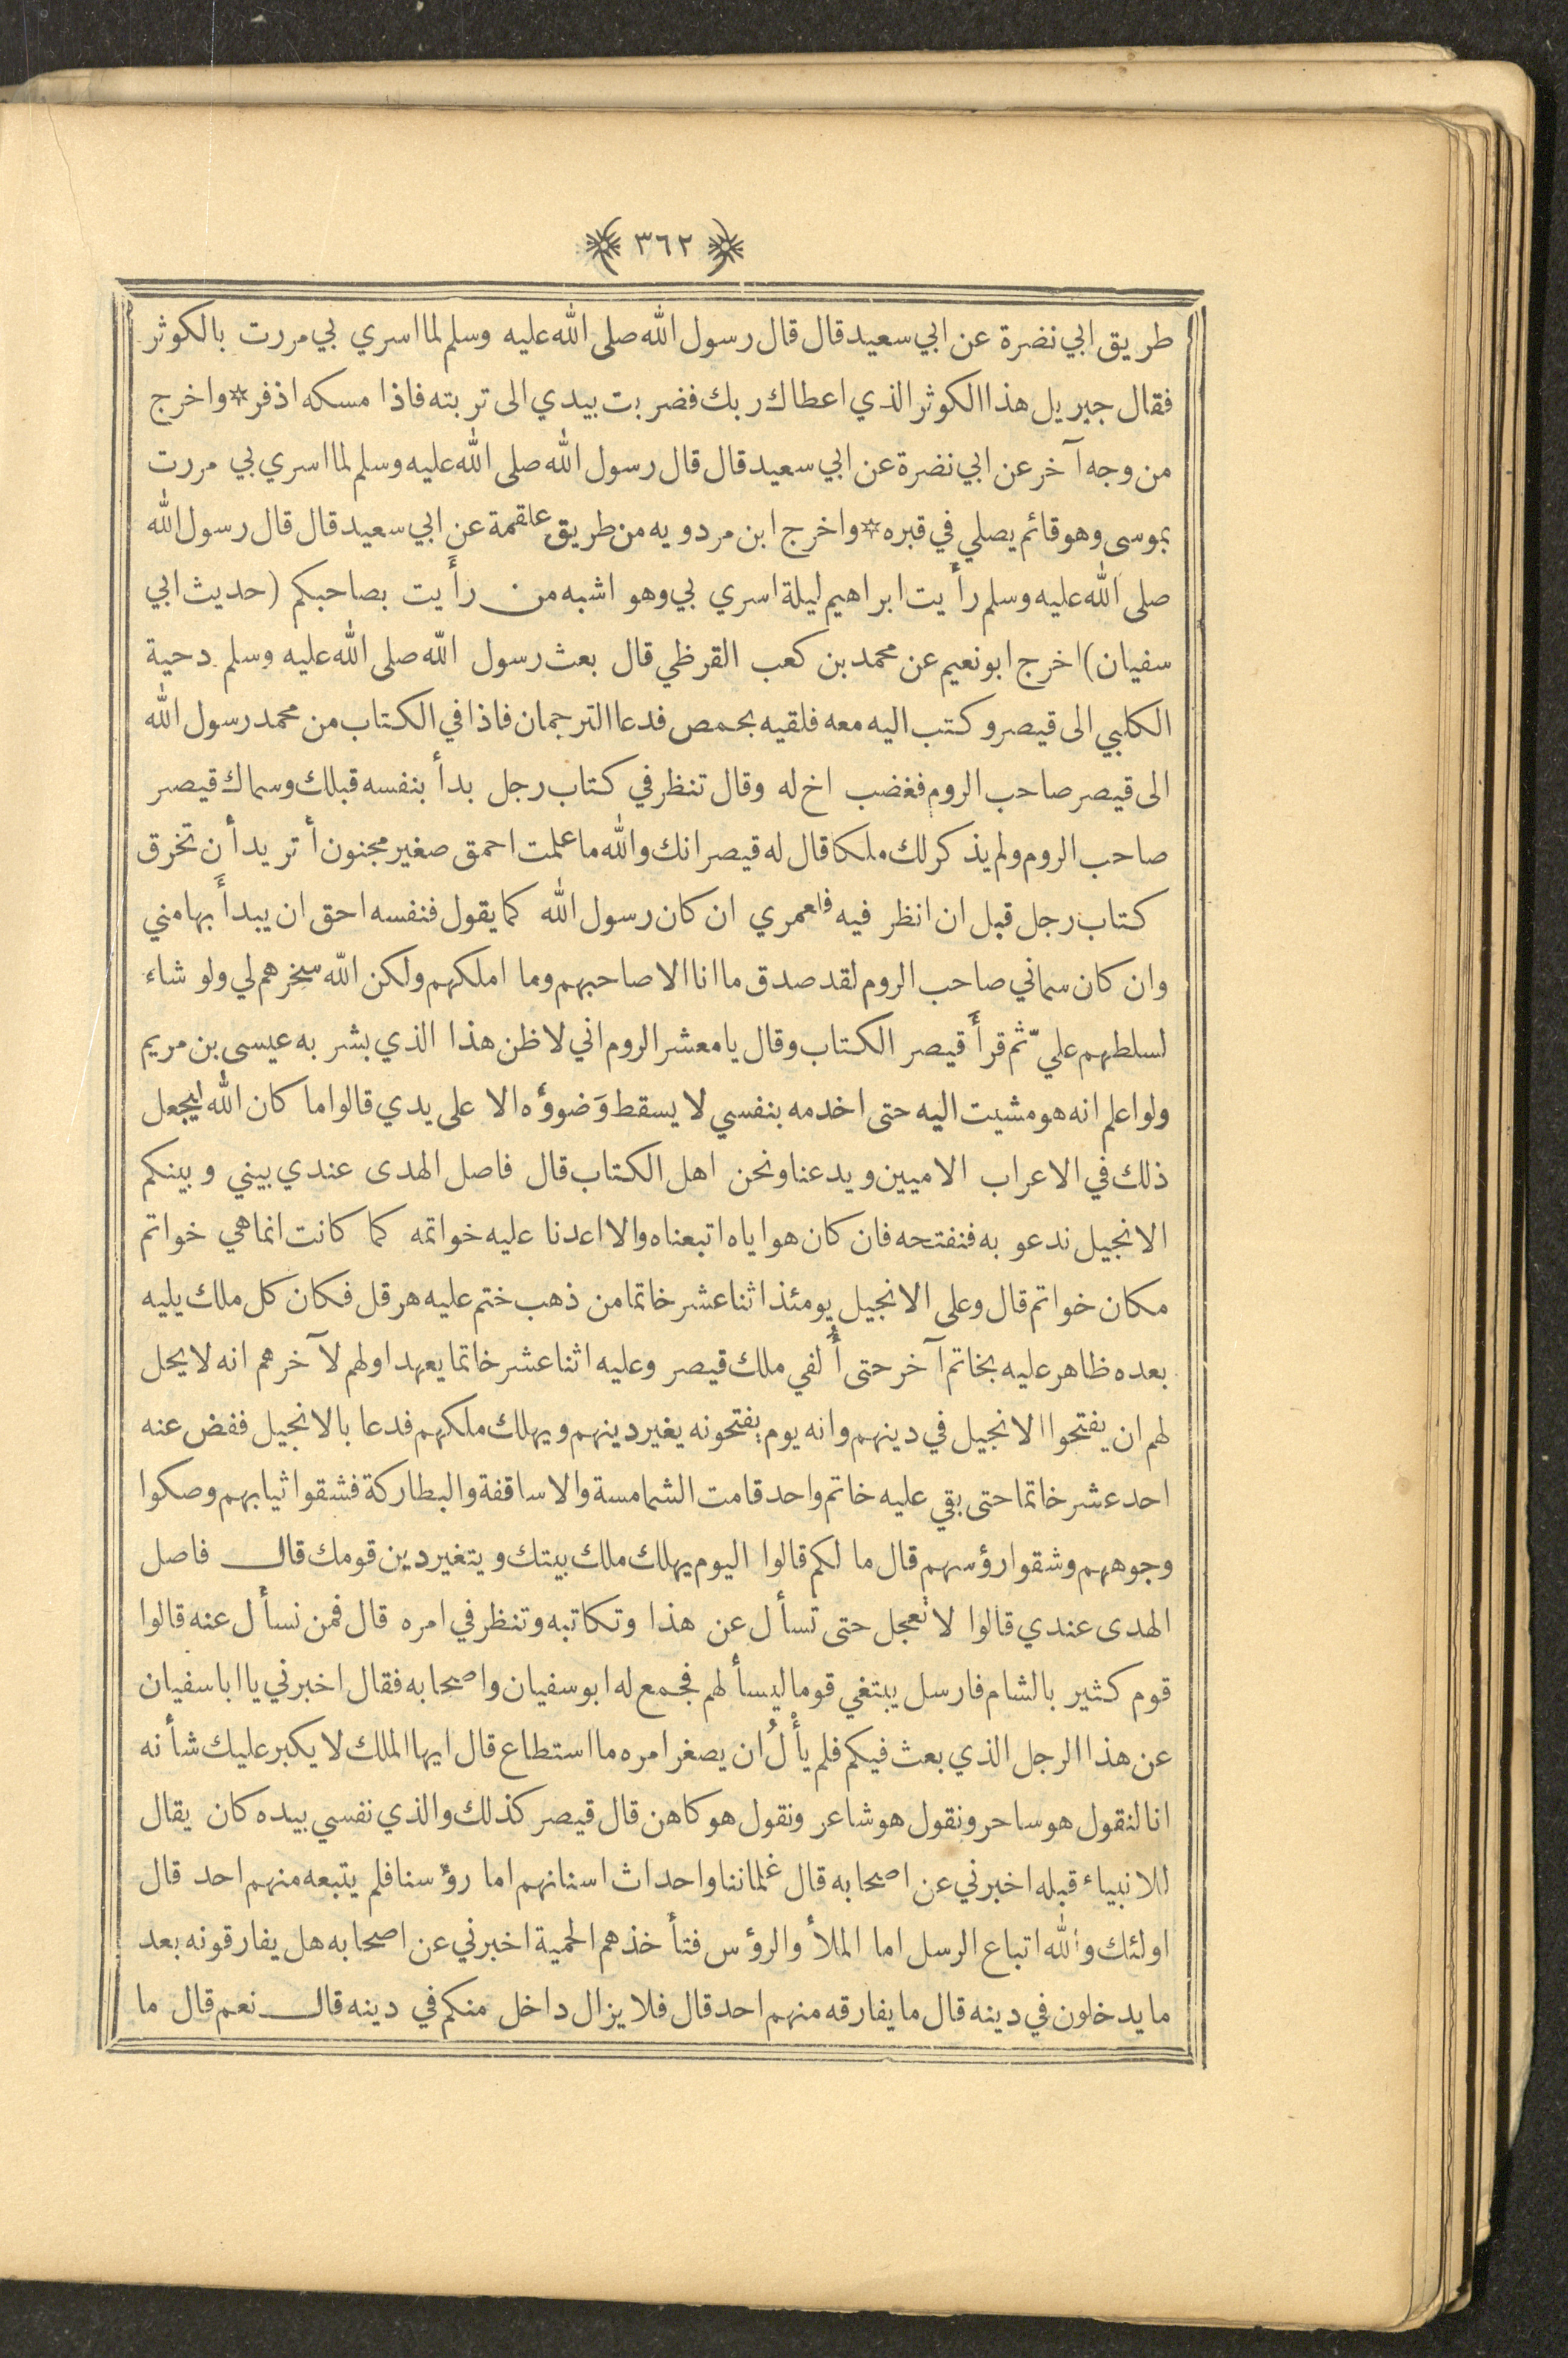 ﴿ ٣٦٢ ﴾
طريق ابي نضرة عن ابي سعيد قال قال رسول الله صلى الله عليه وسلم لما اسري بي مررت بالكوثر
فقال جبريل هذا الكوثر الذي اعطاك ربك فضربت بيدي الى تربته فاذا مسكه اذفر * واخرج
من وجه آخر عن ابي نضرة عن ابي سعيد قال قال رسول الله صلى الله عليه وسلم لما اسري بي مررت
بموسى وهو قائم يصلي في قبره * واخرج ابن مردويه من طريق علقمة عن ابي سعيد قال قال رسول الله
صلى الله عليه وسلم رأيت ابراهيم ليلة اسري بي وهو اشبه من رأيت بصاحبكم (حديث ابي
سفيان) اخرج ابو نعيم عن محمد بن كعب القرظي قال بعث رسول الله صلى الله عليه وسلم دحية
الكلبي الى قيصر وكتب اليه معه فلقيه بحمص فدعا الترجمان فاذا في الكتاب من محمد رسول الله
الى قيصر صاحب الروم فغضب اخ له وقال تنظر في كتاب رجل بدأ بنفسه قبلك وسماك قيصر
صاحب الروم ولم يذكر لك ملكا قال له قيصر انك والله ما علمت احمق صغير مجنون أتريد أن تخرق
كتاب رجل قبل ان انظر فيه فلعمري ان كان رسول الله كما يقول فنفسه احق ان يبدأ بها مني
وان كان سماني صاحب الروم لقد صدق ما انا الا صاحبهم وما املكهم ولكن الله سخرهم لي ولو شاء
لسلطهم عليّ ثم قرأ قيصر الكتاب وقال يا معشر الروم اني لاظن هذا الذي بشر به عيسى بن مريم
ولو اعلم انه هو مشيت اليه حتى اخدمه بنفسي لا يسقط وَضوؤه الا على يدي قالوا ما كان الله ليجعل
ذلك في الاعراب الاميين ويدعنا ونحن اهل الكتاب قال فاصل الهدى عندي بيني وبينكم
الانجيل ندعو به فنفتحه فان كان هو اياه اتبعناه والا اعدنا عليه خواتمه كما كانت انما هي خواتم
مكان خواتم قال وعلى الانجيل يومئذ اثنا عشر خاتما من ذهب ختم عليه هرقل فكان كل ملك يليه
بعده ظاهر عليه بخاتم آخر حتى أُلفي ملك قيصر وعليه اثنا عشر خاتما يعهد اولهم لآخرهم انه لا يحل
لهم ان يفتحوا الانجيل في دينهم وانه يوم يفتحونه يغير دينهم ويهلك ملكهم فدعا بالانجيل ففض عنه
احد عشر خاتما حتى بقي عليه خاتم واحد قامت الشمامسة والاساقفة والبطاركة فشقوا ثيابهم وصكوا
وجوههم وشقوا رؤسهم قال ما لكم قالوا اليوم يهلك ملك بيتك ويتغير دين قومك قال فاصل
الهدى عندي قالوا لا تعجل حتى تسأل عن هذا وتكاتبه وتنظر في امره قال فمن نسأل عنه قالوا
قوم كثير بالشام فارسل يبتغي قوما ليسألهم فجمع له ابو سفيان واصحابه فقال اخبرني يا ابا سفيان
عن هذا الرجل الذي بعث فيكم فلم يأْلُ ان يصغر امره ما استطاع قال ايها الملك لا يكبر عليك شأنه
انا لنقول هو ساحر ونقول هو شاعر ونقول هو كاهن قال قيصر كذلك والذي نفسي بيده كان يقال
للانبياء قبله اخبرني عن اصحابه قال غلماننا واحداث اسنانهم اما رؤسنا فلم يتبعه منهم احد قال
اولئك والله اتباع الرسل اما الملأ والرؤس فتأخذهم الحمية اخبرني عن اصحابه هل يفارقونه بعد
ما يدخلون في دينه قال ما يفارقه منهم احد قال فلا يزال داخل منكم في دينه قال نعم قال ما